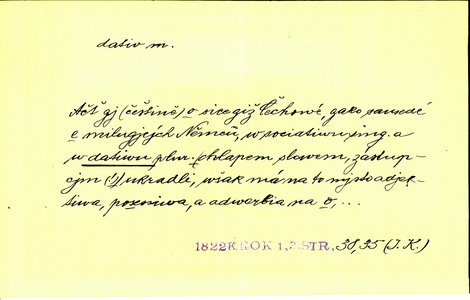 dativ m.
Ačť gj (češtině) o sice giž Čechowé, gako sausedé
e milugjcých Němců, w sociatiwu sing. a
w datiwu plur. /chlapem, slowem, zástup-
cjm (!)/ ukradli, však má na to mjsto adjek-
tiwa, pozniwa, a adwerbia na o, ...
1822 KROK 1, 2. STR. 38, 35 (J. K.)